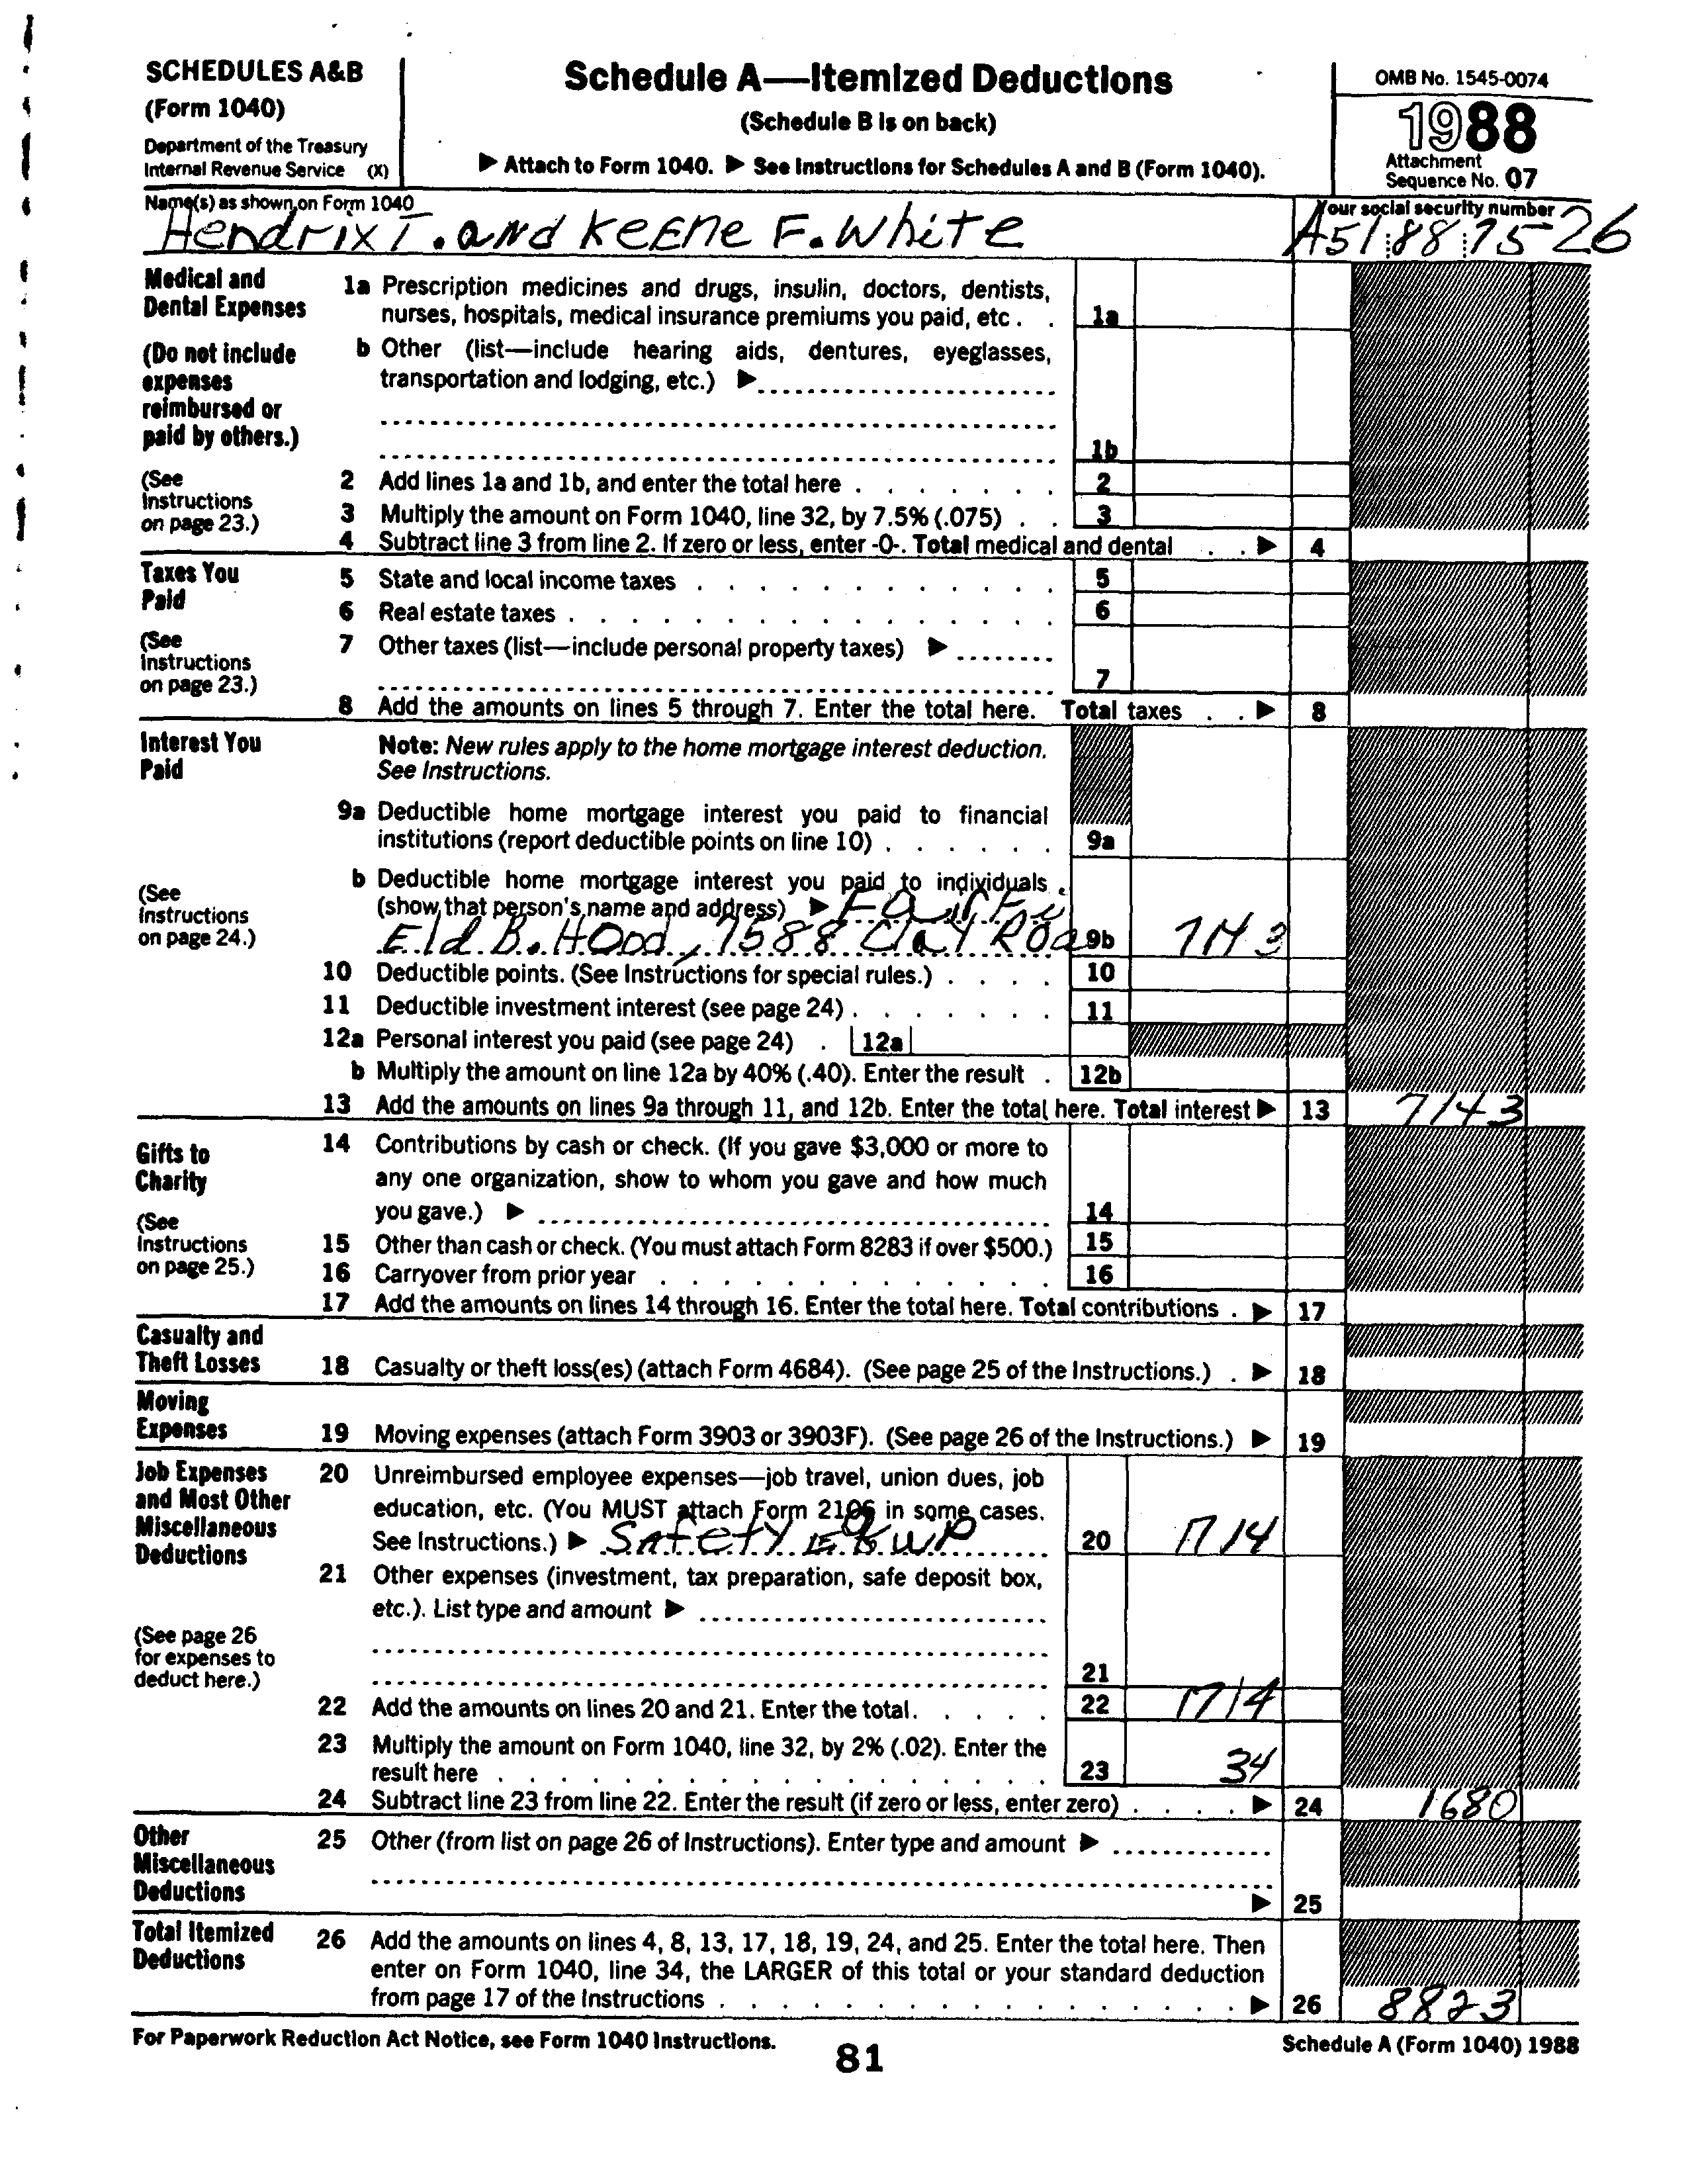 SCHEDULES A&B
(Form 1040)
Department of the Treasury
Internal Revenue Service (X)
Schedule A—Itemized Deductions
(Schedule B is on back)
▶ Attach to Form 1040. ▶ See Instructions for Schedules A and B (Form 1040).
OMB No. 1545-0074
1988
Attachment
Sequence No. 07
Name(s) as shown on Form 1040
Hendrix T. and KeEne F. White
Your social security number
A51 88 7526
Medical and
Dental Expenses
(Do not include
expenses
reimbursed or
paid by others.)
(See
Instructions
on page 23.)
1a Prescription medicines and drugs, insulin, doctors, dentists,
nurses, hospitals, medical insurance premiums you paid, etc . . 1a
b Other (list—include hearing aids, dentures, eyeglasses,
transportation and lodging, etc.) ▶
1b
2 Add lines 1a and 1b, and enter the total here . . . . . . . 2
3 Multiply the amount on Form 1040, line 32, by 7.5% (.075) . . 3
4 Subtract line 3 from line 2. If zero or less, enter -0-. Total medical and dental . . ▶ 4
Taxes You
Paid
(See
Instructions
on page 23.)
5 State and local income taxes . . . . . . . . . . . . 5
6 Real estate taxes . . . . . . . . . . . . . . . . 6
7 Other taxes (list—include personal property taxes) ▶
7
8 Add the amounts on lines 5 through 7. Enter the total here. Total taxes . . ▶ 8
Interest You
Paid
(See
Instructions
on page 24.)
Note: New rules apply to the home mortgage interest deduction.
See Instructions.
9a Deductible home mortgage interest you paid to financial
institutions (report deductible points on line 10) . . . . . . 9a
b Deductible home mortgage interest you paid to individuals
(show that person's name and address) ▶ FairFi
Eld B. Hood, 7588 Clay Road 9b 7143
10 Deductible points. (See Instructions for special rules.) . . . . 10
11 Deductible investment interest (see page 24) . . . . . . . 11
12a Personal interest you paid (see page 24) . 12a
b Multiply the amount on line 12a by 40% (.40). Enter the result . 12b
13 Add the amounts on lines 9a through 11, and 12b. Enter the total here. Total interest ▶ 13 7143
Gifts to
Charity
(See
Instructions
on page 25.)
14 Contributions by cash or check. (If you gave $3,000 or more to
any one organization, show to whom you gave and how much
you gave.) ▶ 14
15 Other than cash or check. (You must attach Form 8283 if over $500.) 15
16 Carryover from prior year . . . . . . . . . . . . . 16
17 Add the amounts on lines 14 through 16. Enter the total here. Total contributions . ▶ 17
Casualty and
Theft Losses
18 Casualty or theft loss(es) (attach Form 4684). (See page 25 of the Instructions.) . ▶ 18
Moving
Expenses
19 Moving expenses (attach Form 3903 or 3903F). (See page 26 of the Instructions.) ▶ 19
Job Expenses
and Most Other
Miscellaneous
Deductions
(See page 26
for expenses to
deduct here.)
20 Unreimbursed employee expenses—job travel, union dues, job
education, etc. (You MUST attach Form 2106 in some cases.
See Instructions.) ▶ Safety 20 1714
21 Other expenses (investment, tax preparation, safe deposit box,
etc.). List type and amount ▶
21
22 Add the amounts on lines 20 and 21. Enter the total. . . . . . 22 1714
23 Multiply the amount on Form 1040, line 32, by 2% (.02). Enter the
result here . . . . . . . . . . . . . . . . . . 23 34
24 Subtract line 23 from line 22. Enter the result (if zero or less, enter zero) . . . . ▶ 24 1680
Other
Miscellaneous
Deductions
25 Other (from list on page 26 of Instructions). Enter type and amount ▶
▶ 25
Total Itemized
Deductions
26 Add the amounts on lines 4, 8, 13, 17, 18, 19, 24, and 25. Enter the total here. Then
enter on Form 1040, line 34, the LARGER of this total or your standard deduction
from page 17 of the Instructions . . . . . . . . . . . . . . . . . . ▶ 26 8823
For Paperwork Reduction Act Notice, see Form 1040 Instructions.
81
Schedule A (Form 1040) 1988